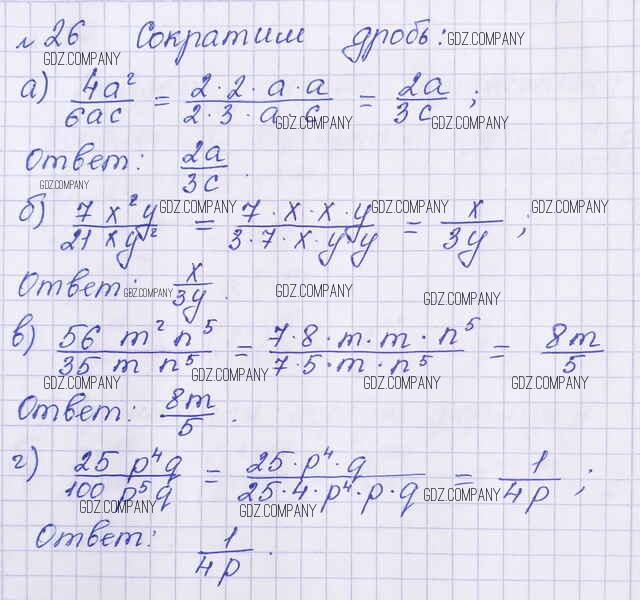 № 26 Сократим дробь: GDZ.COMPANY
GDZ.COMPANY
а) 4a²/6ac = 2·2·a·a/2·3·a·c = 2a/3c ;
GDZ.COMPANY GDZ.COMPANY
Ответ: 2a/3c .
GDZ.COMPANY
б) 7x²y/21xy² = 7·x·x·y/3·7·x·y·y = x/3y ;
GDZ.COMPANY GDZ.COMPANY GDZ.COMPANY
Ответ: x/3y .
GDZ.COMPANY GDZ.COMPANY GDZ.COMPANY
в) 56m²n⁵/35mn⁵ = 7·8·m·m·n⁵/7·5·m·n⁵ = 8m/5
GDZ.COMPANY GDZ.COMPANY GDZ.COMPANY GDZ.COMPANY
Ответ: 8m/5 .
г) 25p⁴q/100p⁵q = 25·p⁴·q/25·4·p⁴·p·q = 1/4p ;
GDZ.COMPANY GDZ.COMPANY GDZ.COMPANY
Ответ: 1/4p .